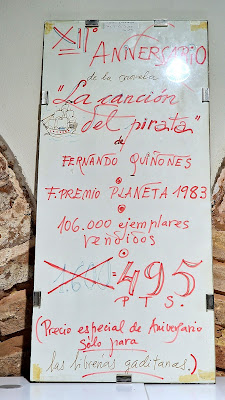 XII° ANIVERSARIO
de la novela
"La canción
del pirata"
de
FERNANDO QUIÑONES
F. PREMIO PLANETA 1983
106.000 ejemplares
vendidos
1.600 = 495
PTS.
(Precio especial de Aniversario
sólo para
las librerías gaditanas.)